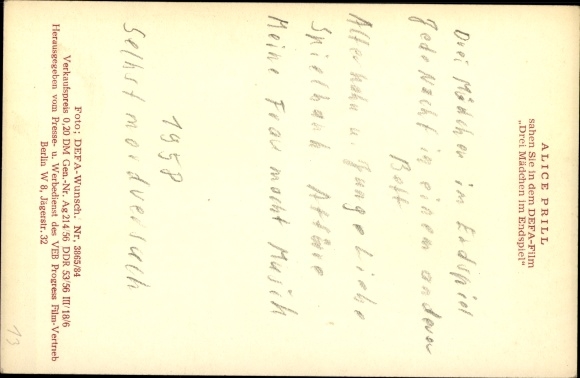 ALICE PRILL
sahen Sie in dem DEFA-Film
„Drei Mädchen im Endspiel“
Drei Mädchen im Endspiel
Jede Nacht in einem anderen
Bett
Alter Kahn u. Junge Liebe
Spielbank Affäre
Meine Frau macht Musik
1958
Selbstmordversuch
Foto: DEFA-Wunsch. Nr. 3865/84
Verkaufspreis 0,20 DM Gen.-Nr. Ag 214/56 DDR 53/56 III/18/6
Herausgegeben vom Presse- u. Werbedienst des VEB Progress Film-Vertrieb
Berlin W 8, Jägerstr. 32
13